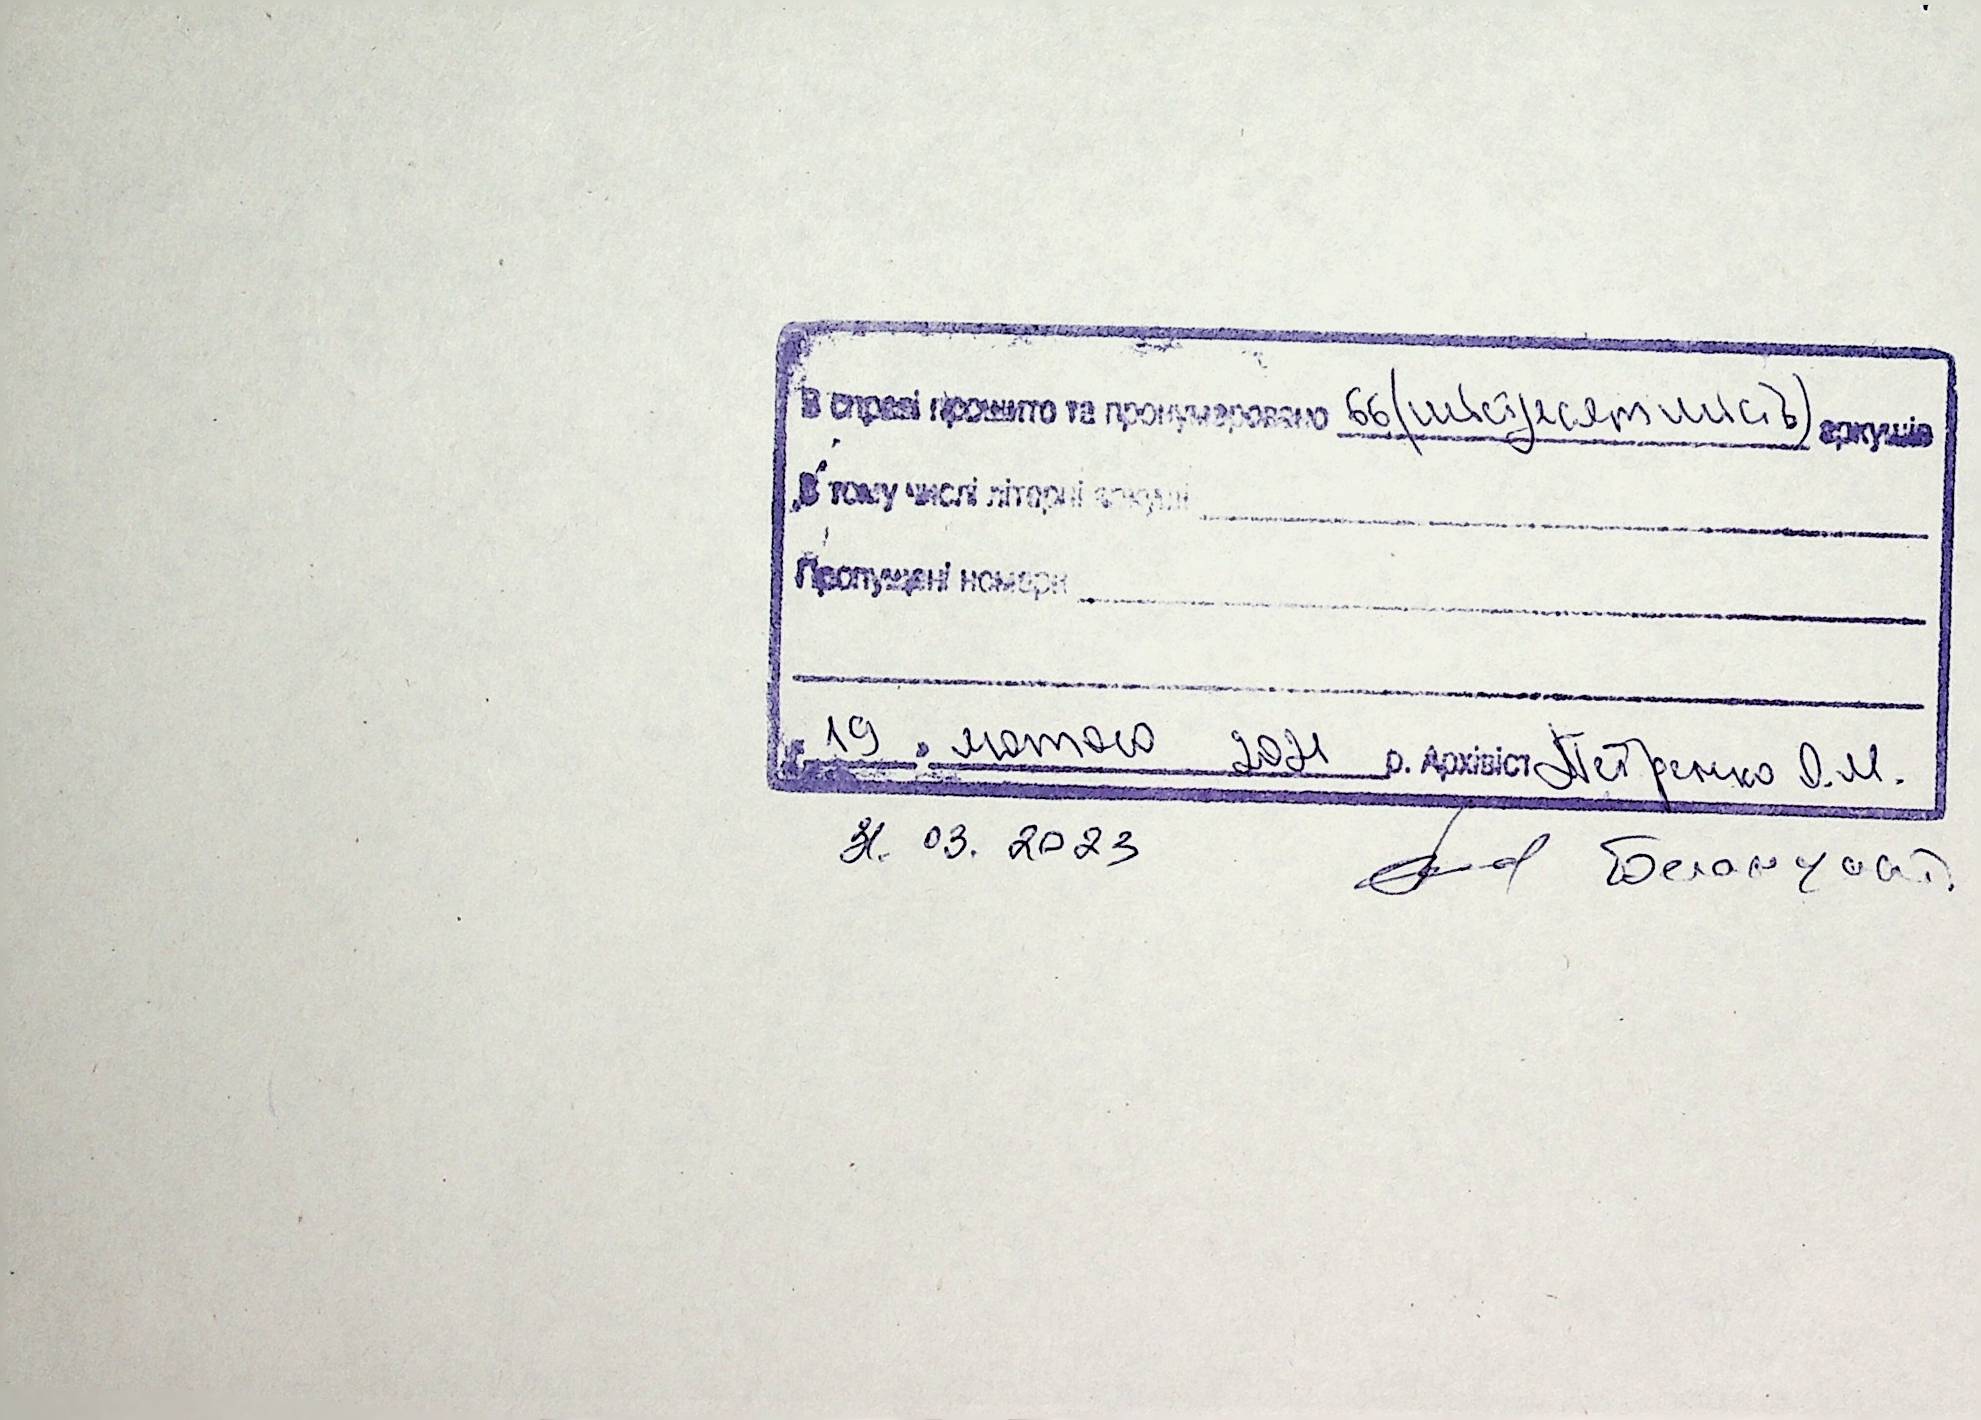 В справі прошито та пронумеровано 66 (шістдесят шість) аркушів
В тому числі літерні аркуші
Пропущені номери
" 19 " лютого 2021 р. Архівіст Петренко О.М.
03. 2023